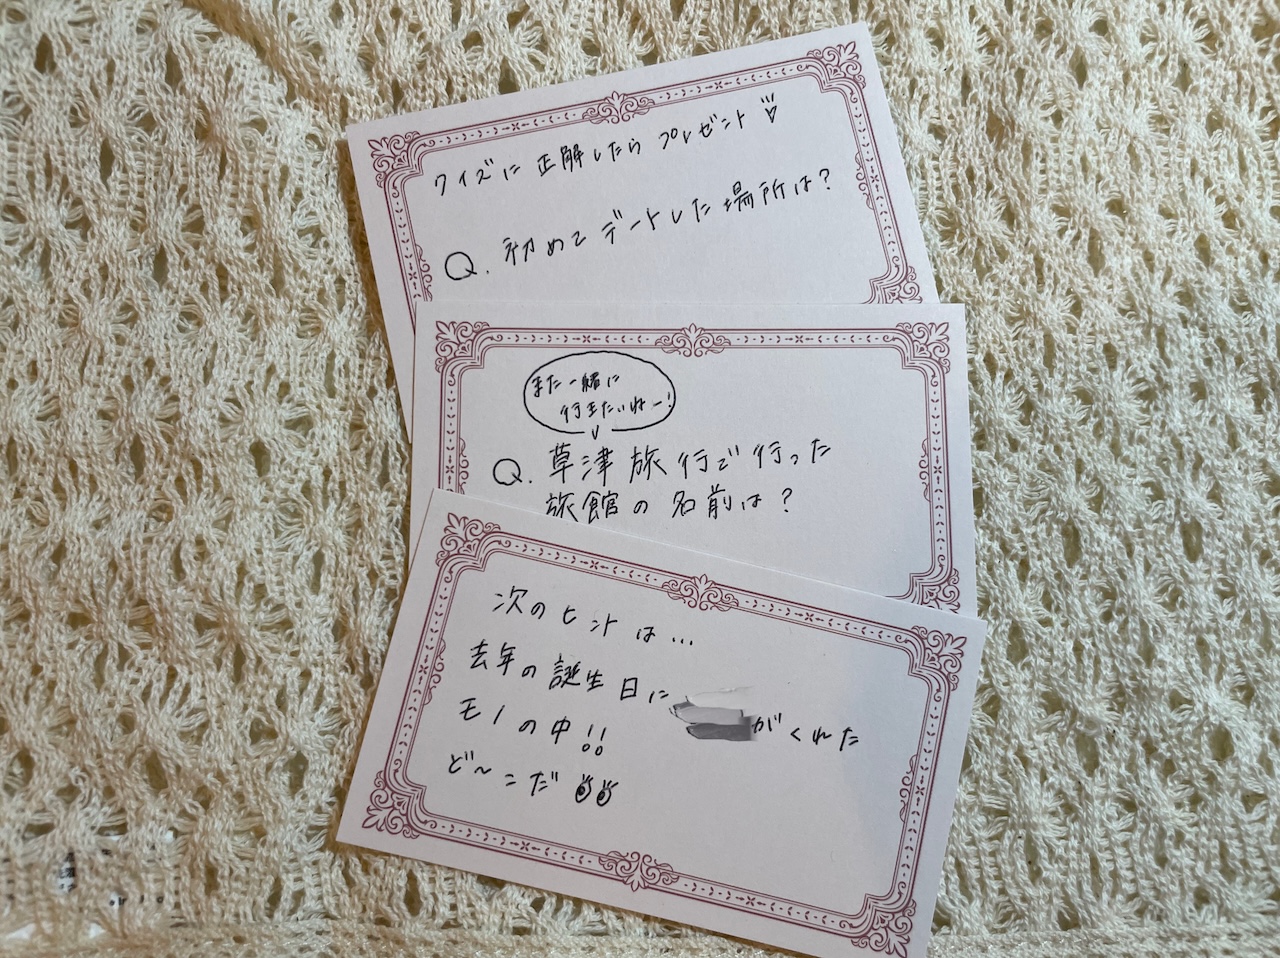 クイズに正解したらプレゼント♡
Q. 初めてデートした場所は?
また一緒に
行きたいねー!
Q. 草津旅行で行った
旅館の名前は?
次のヒントは…
去年の誕生日に がくれた
モノの中!!
ど〜こだ👀